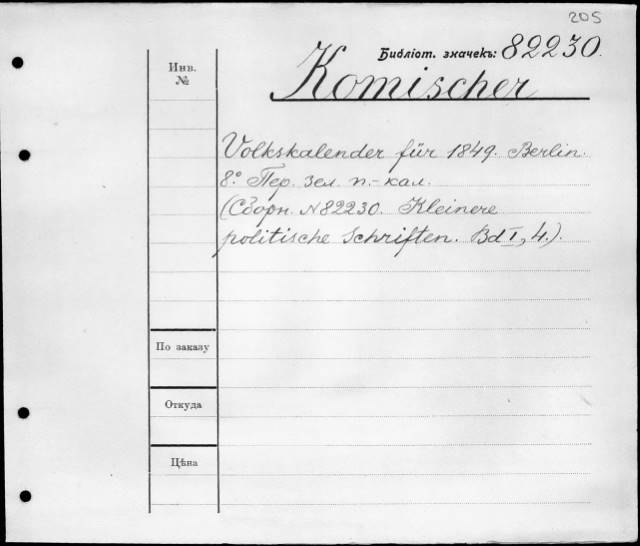 205
Библіот. значекъ: 82230.
Инв.
№
Komischer
Volkskalender für 1849. Berlin.
8.° Пер. зел. п.-кал.
(Сборн. N 82230. Kleinere
politische Schriften. Bd I, 4.).
По заказу
Откуда
Цѣна